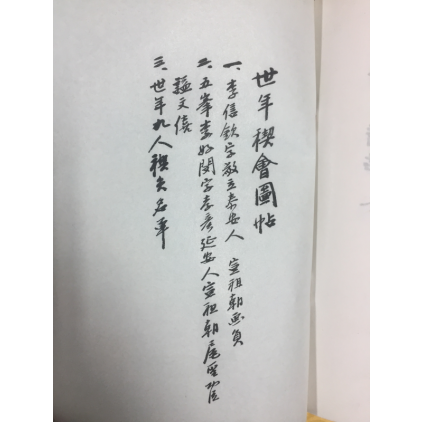 世年稧會圖帖
一、李信欽字敬立泰安人 宣祖朝画員
二、五峯李好閔字孝彦延安人宣祖朝扈聖功臣
諡文僖
三、世年九人稧